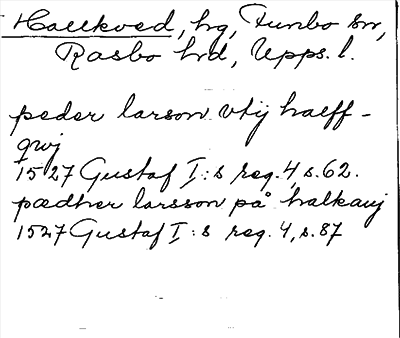 Hallkved, hg, Funbo sn,
Rasbo hrd, Upps. l.
peder larson vtij haelff-
qwj
1527 Gustaf I:s reg. 4, s. 62.
pædher larsson på halkauj
1527 Gustaf I:s reg. 4, s. 87